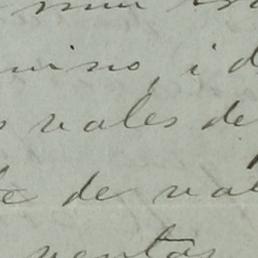 mino, i d
s vales de
te de val
ventas